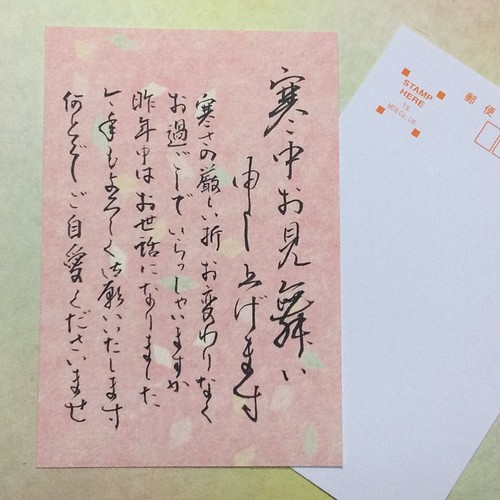 寒中お見舞い
申し上げます
寒さの厳しい折 お変わりなく
お過ごしでいらっしゃいますか
昨年中はお世話になりました
今年もよろしくお願いいたします
何とぞご自愛くださいませ
STAMP
HERE
郵便